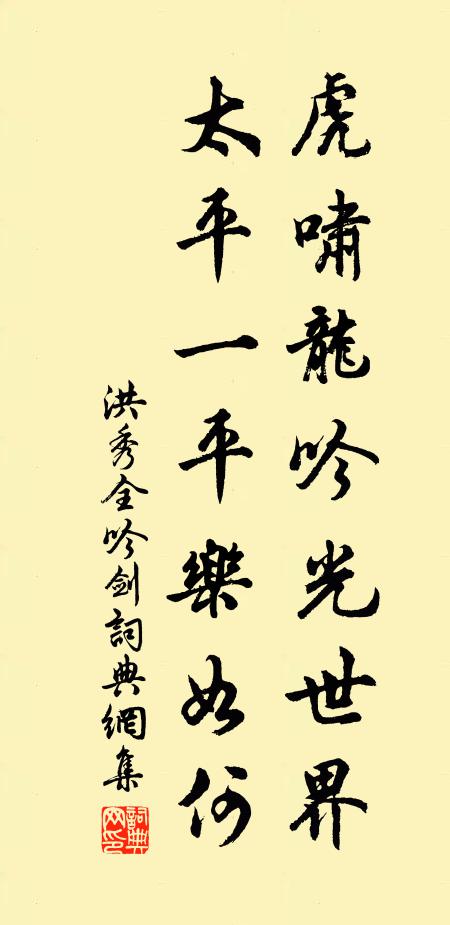 虎嘯龍吟光世界
太平一平樂如何
洪秀全吟劍詞典網集
詞典網印